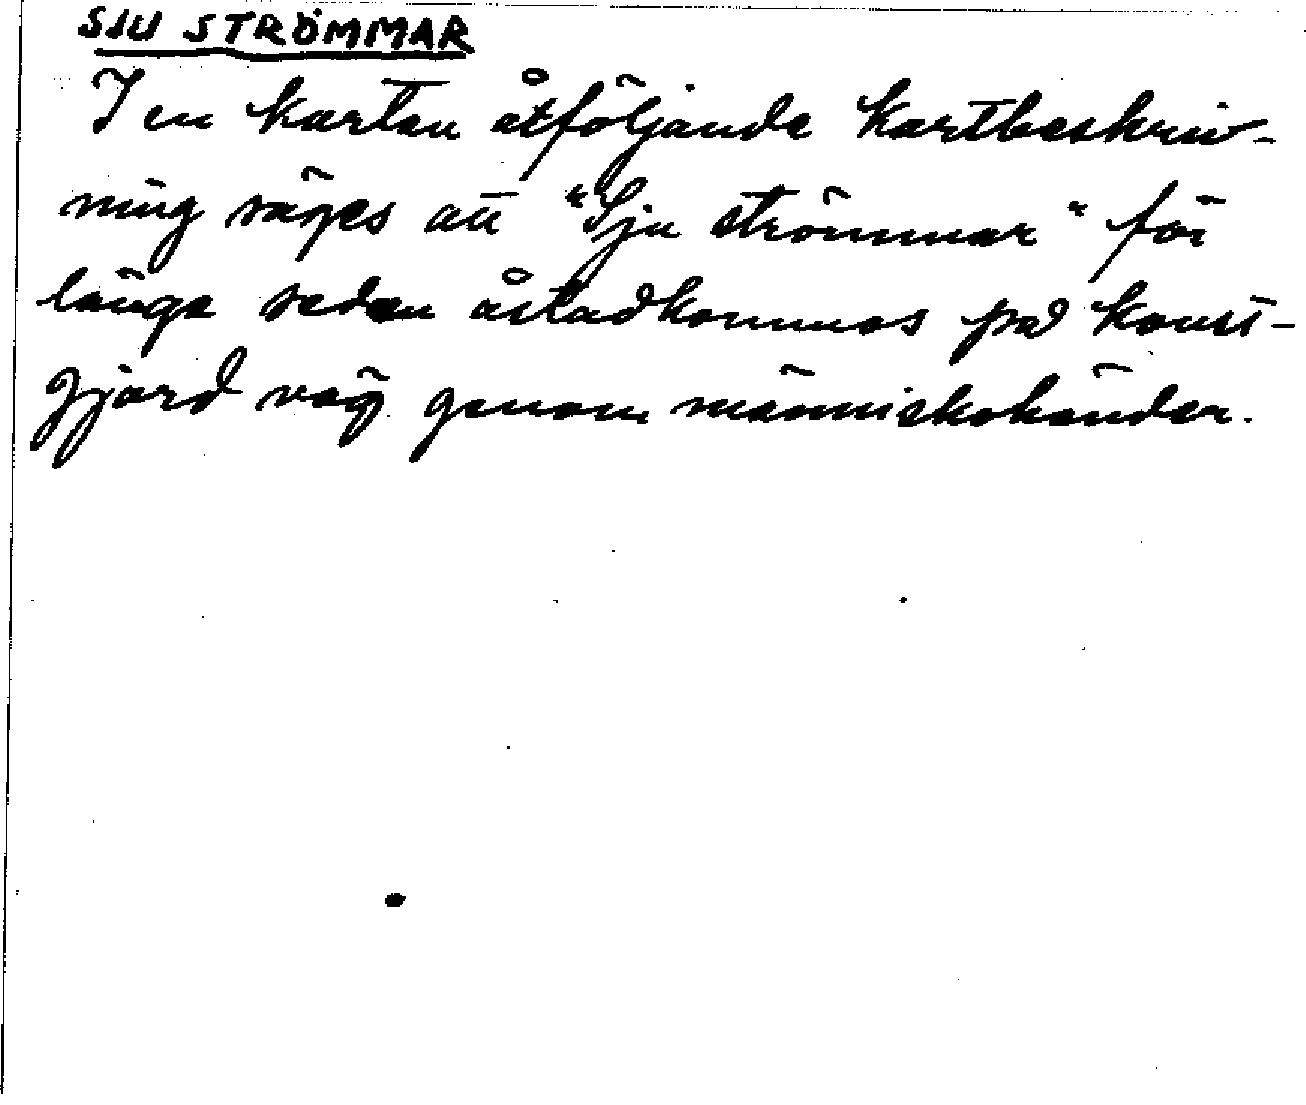 SJU STRÖMMAR
I en kartan åtföljande kartbeskriv-
ning säges att "Sju strömmar" för
länge sedan åstadkommos på konst-
gjord väg genom människohänder.